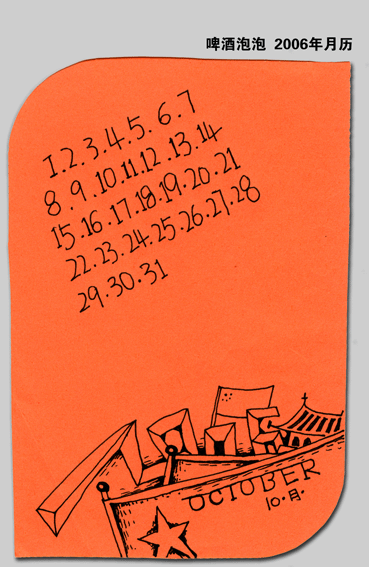 啤酒泡泡 2006年月历
1.2.3.4.5.6.7
8.9.10.11.12.13.14
15.16.17.18.19.20.21
22.23.24.25.26.27.28
29.30.31
OCTOBER
10.月.